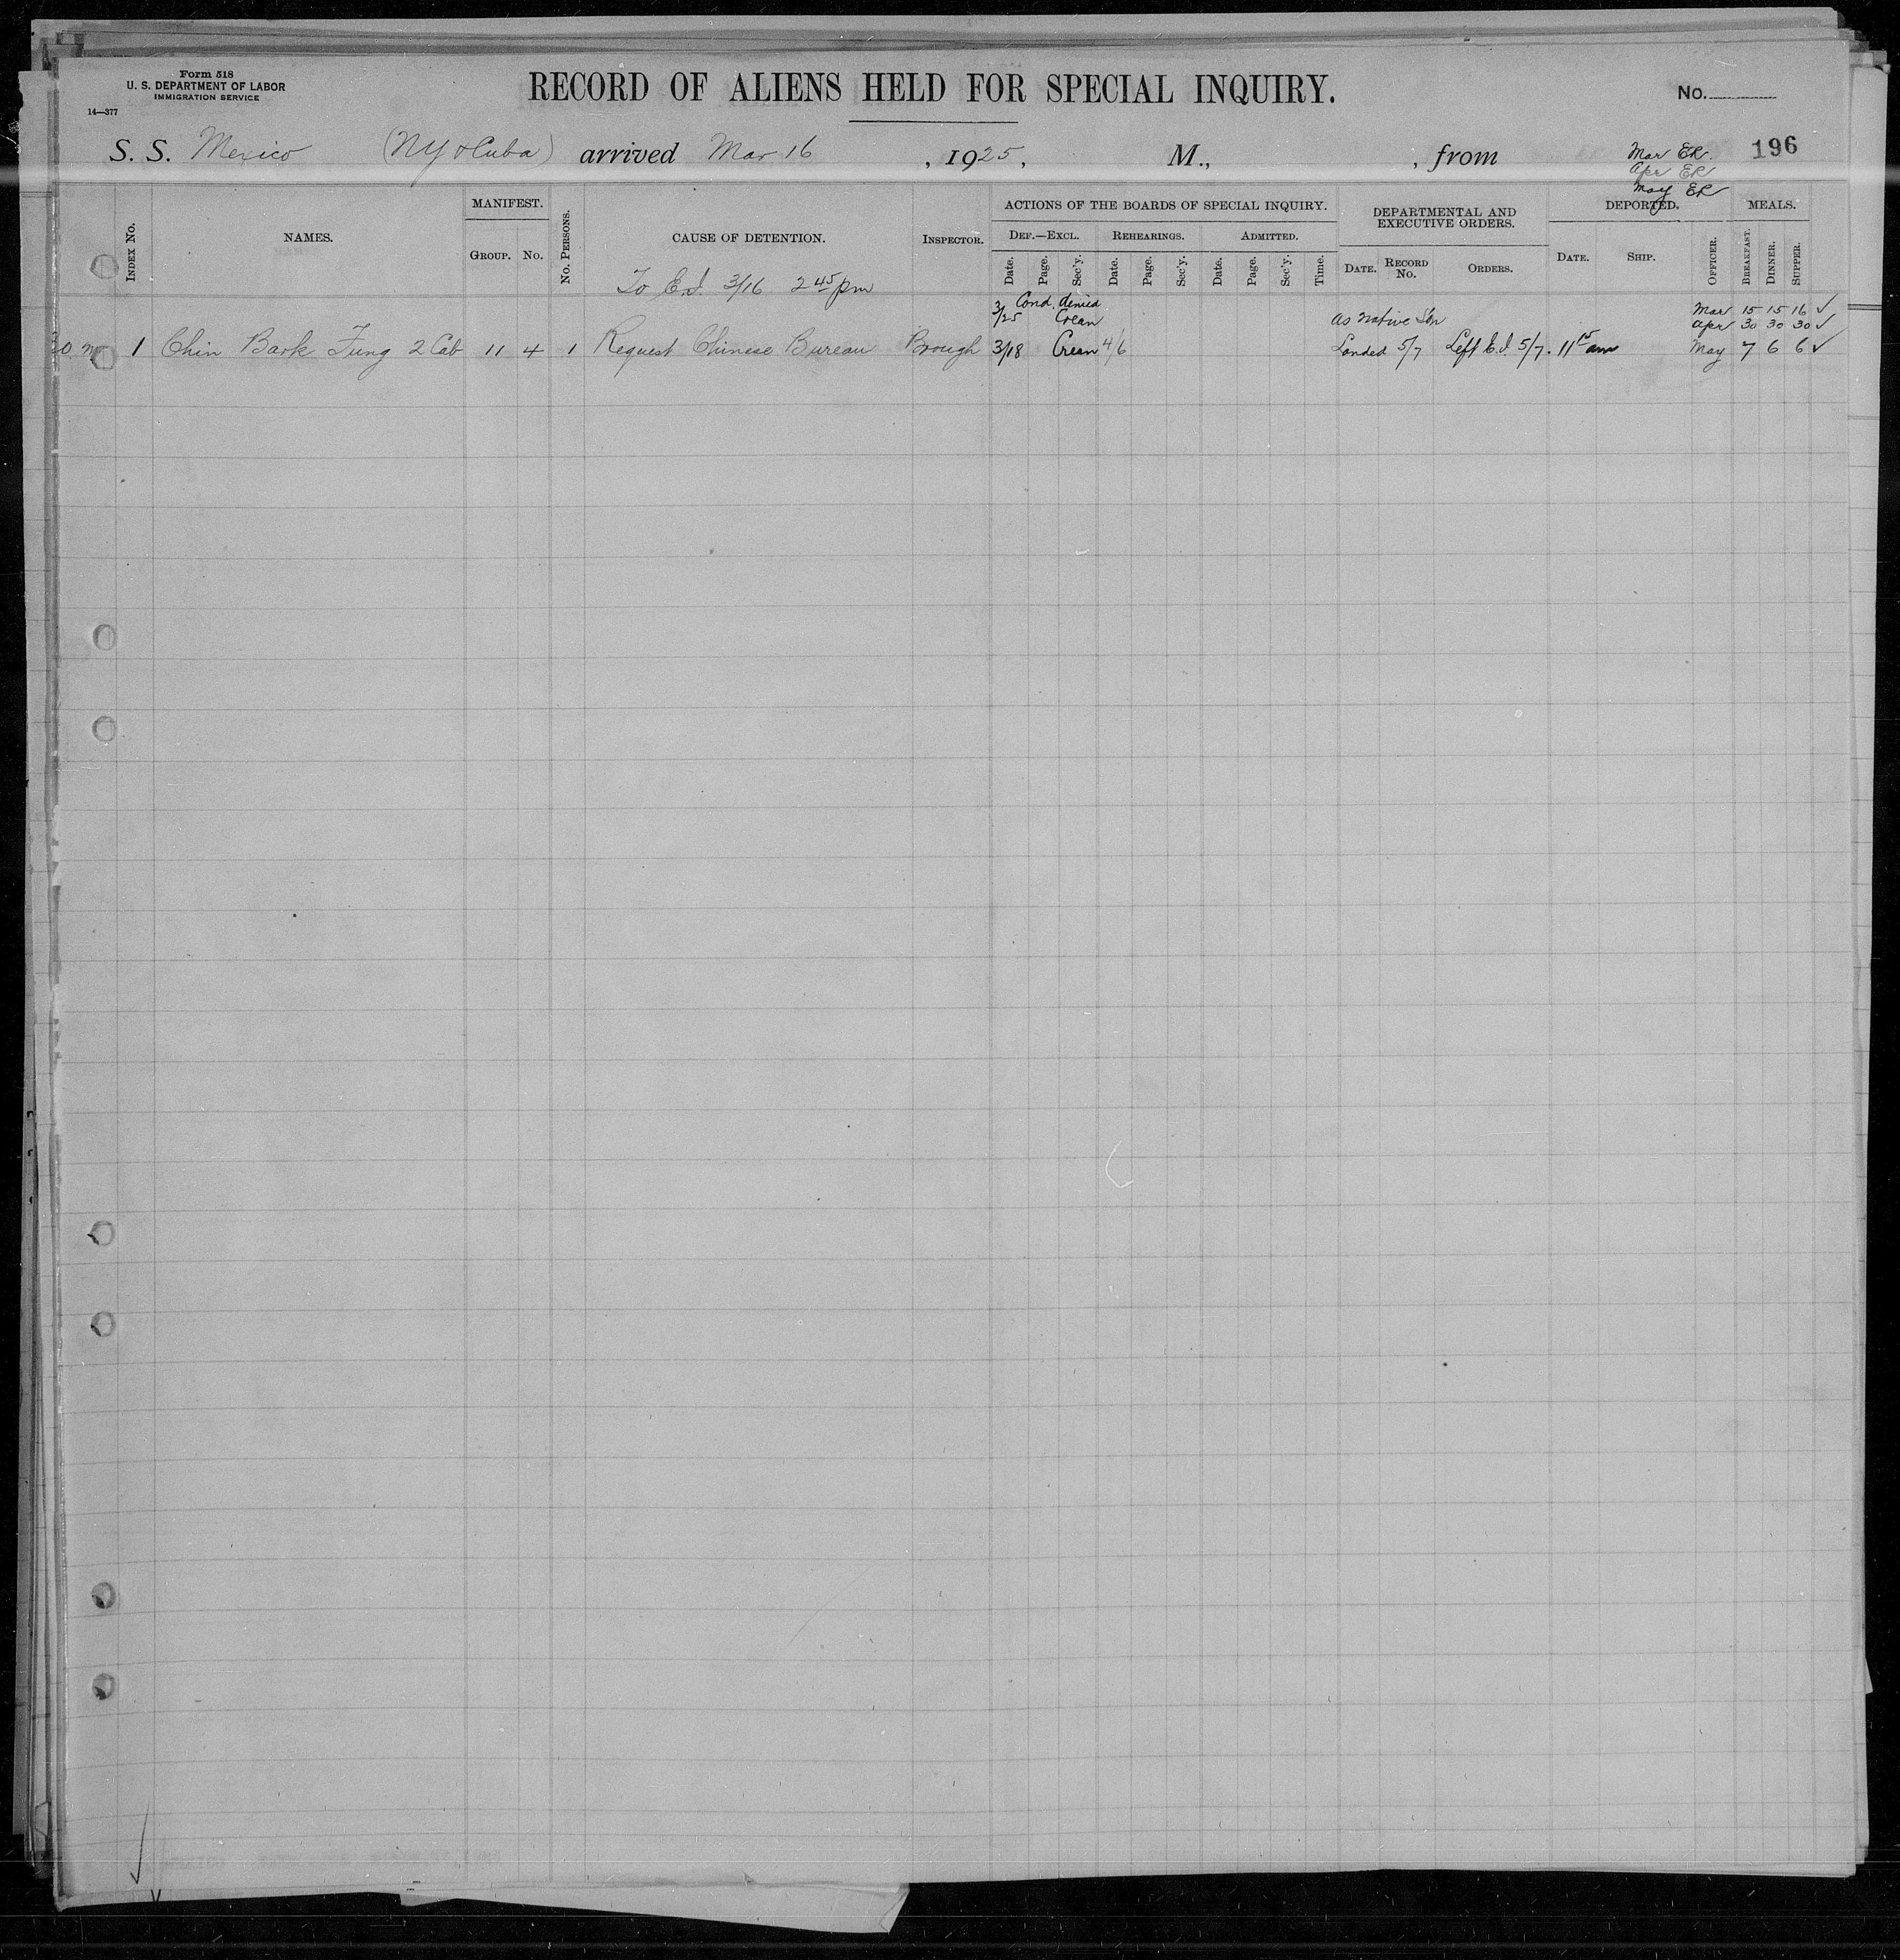 Form 518
U. S. DEPARTMENT OF LABOR
IMMIGRATION SERVICE
14—377
RECORD OF ALIENS HELD FOR SPECIAL INQUIRY.
No.
S. S. Mexico (NY & Cuba) arrived Mar 16, 1925, M., , from
196
Mar ER.
Apr ER
May ER
INDEX No.
NAMES.
MANIFEST.
GROUP. No.
No. PERSONS.
CAUSE OF DETENTION.
INSPECTOR.
ACTIONS OF THE BOARDS OF SPECIAL INQUIRY.
DEF.—EXCL. REHEARINGS. ADMITTED.
Date. Page. Sec'y. Date. Page. Sec'y. Date. Page. Sec'y. Time.
DEPARTMENTAL AND EXECUTIVE ORDERS.
DATE. RECORD No. ORDERS.
DEPORTED.
DATE. SHIP. OFFICER.
MEALS.
BREAKFAST. DINNER. SUPPER.
To E.I. 3/16 2 45 pm
Cond. denied
3/25 Crean
As Native Son
Mar 15 15 16 ✓
Apr 30 30 30 ✓
1 Chin Bark Fung 2 Cab 11 4 1 Request Chinese Bureau Brough 3/18 Crean 4/6 Landed 5/7 Left E.I. 5/7. 11 15 am May 7 6 6 ✓